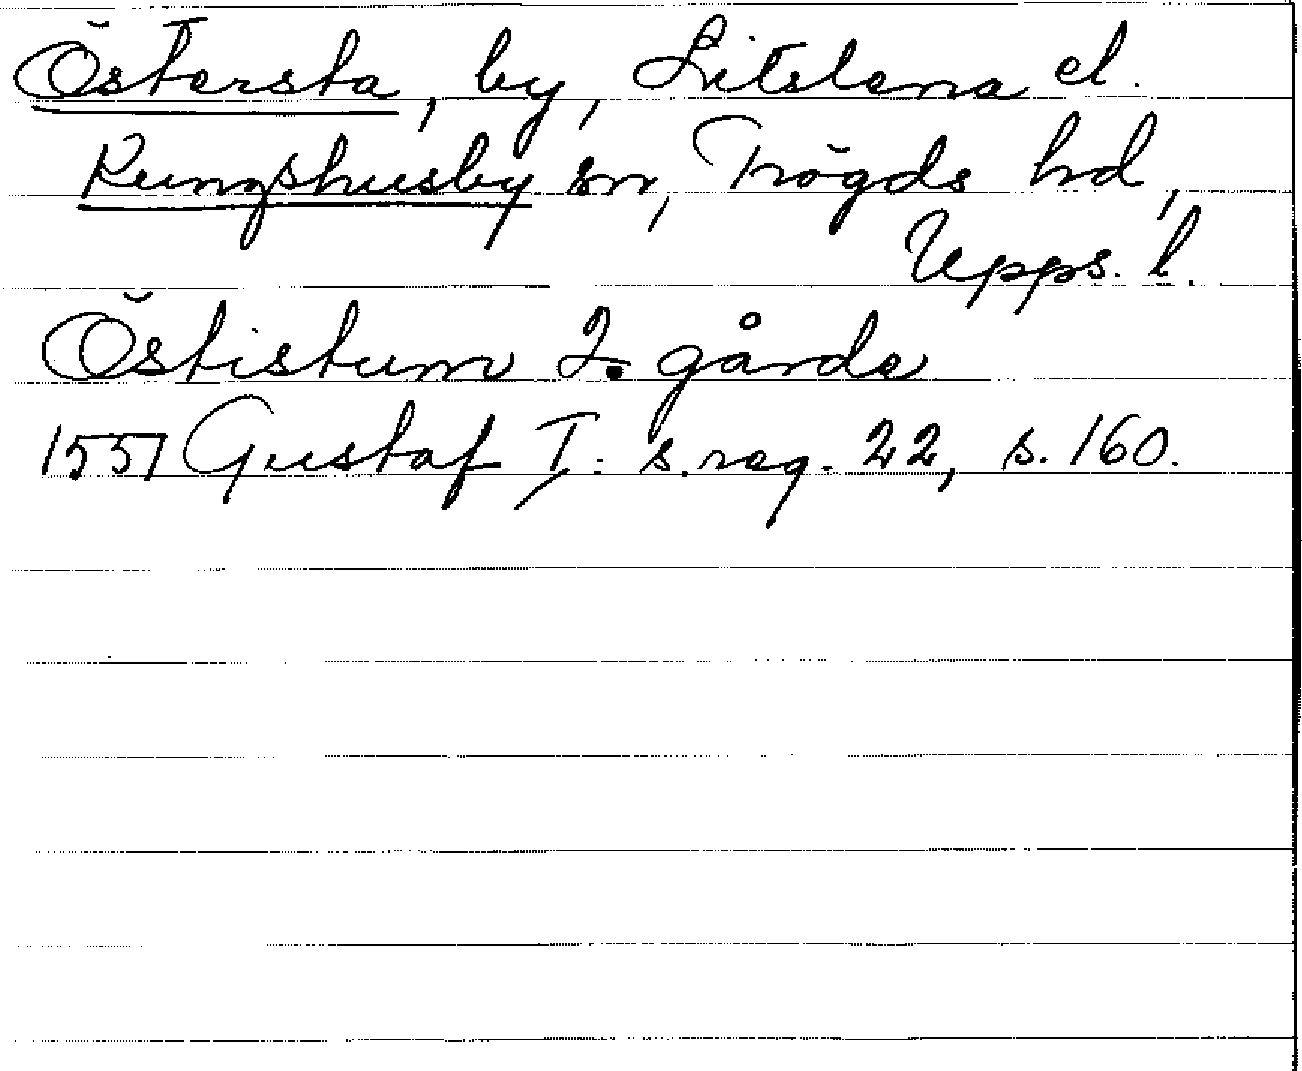 Östersta, by, Litslena el.
Kungshusby sn, Trögds hd,
Upps. l.
Östistum 2. gårda
1557 Gustaf I: s. reg. 22, s. 160.